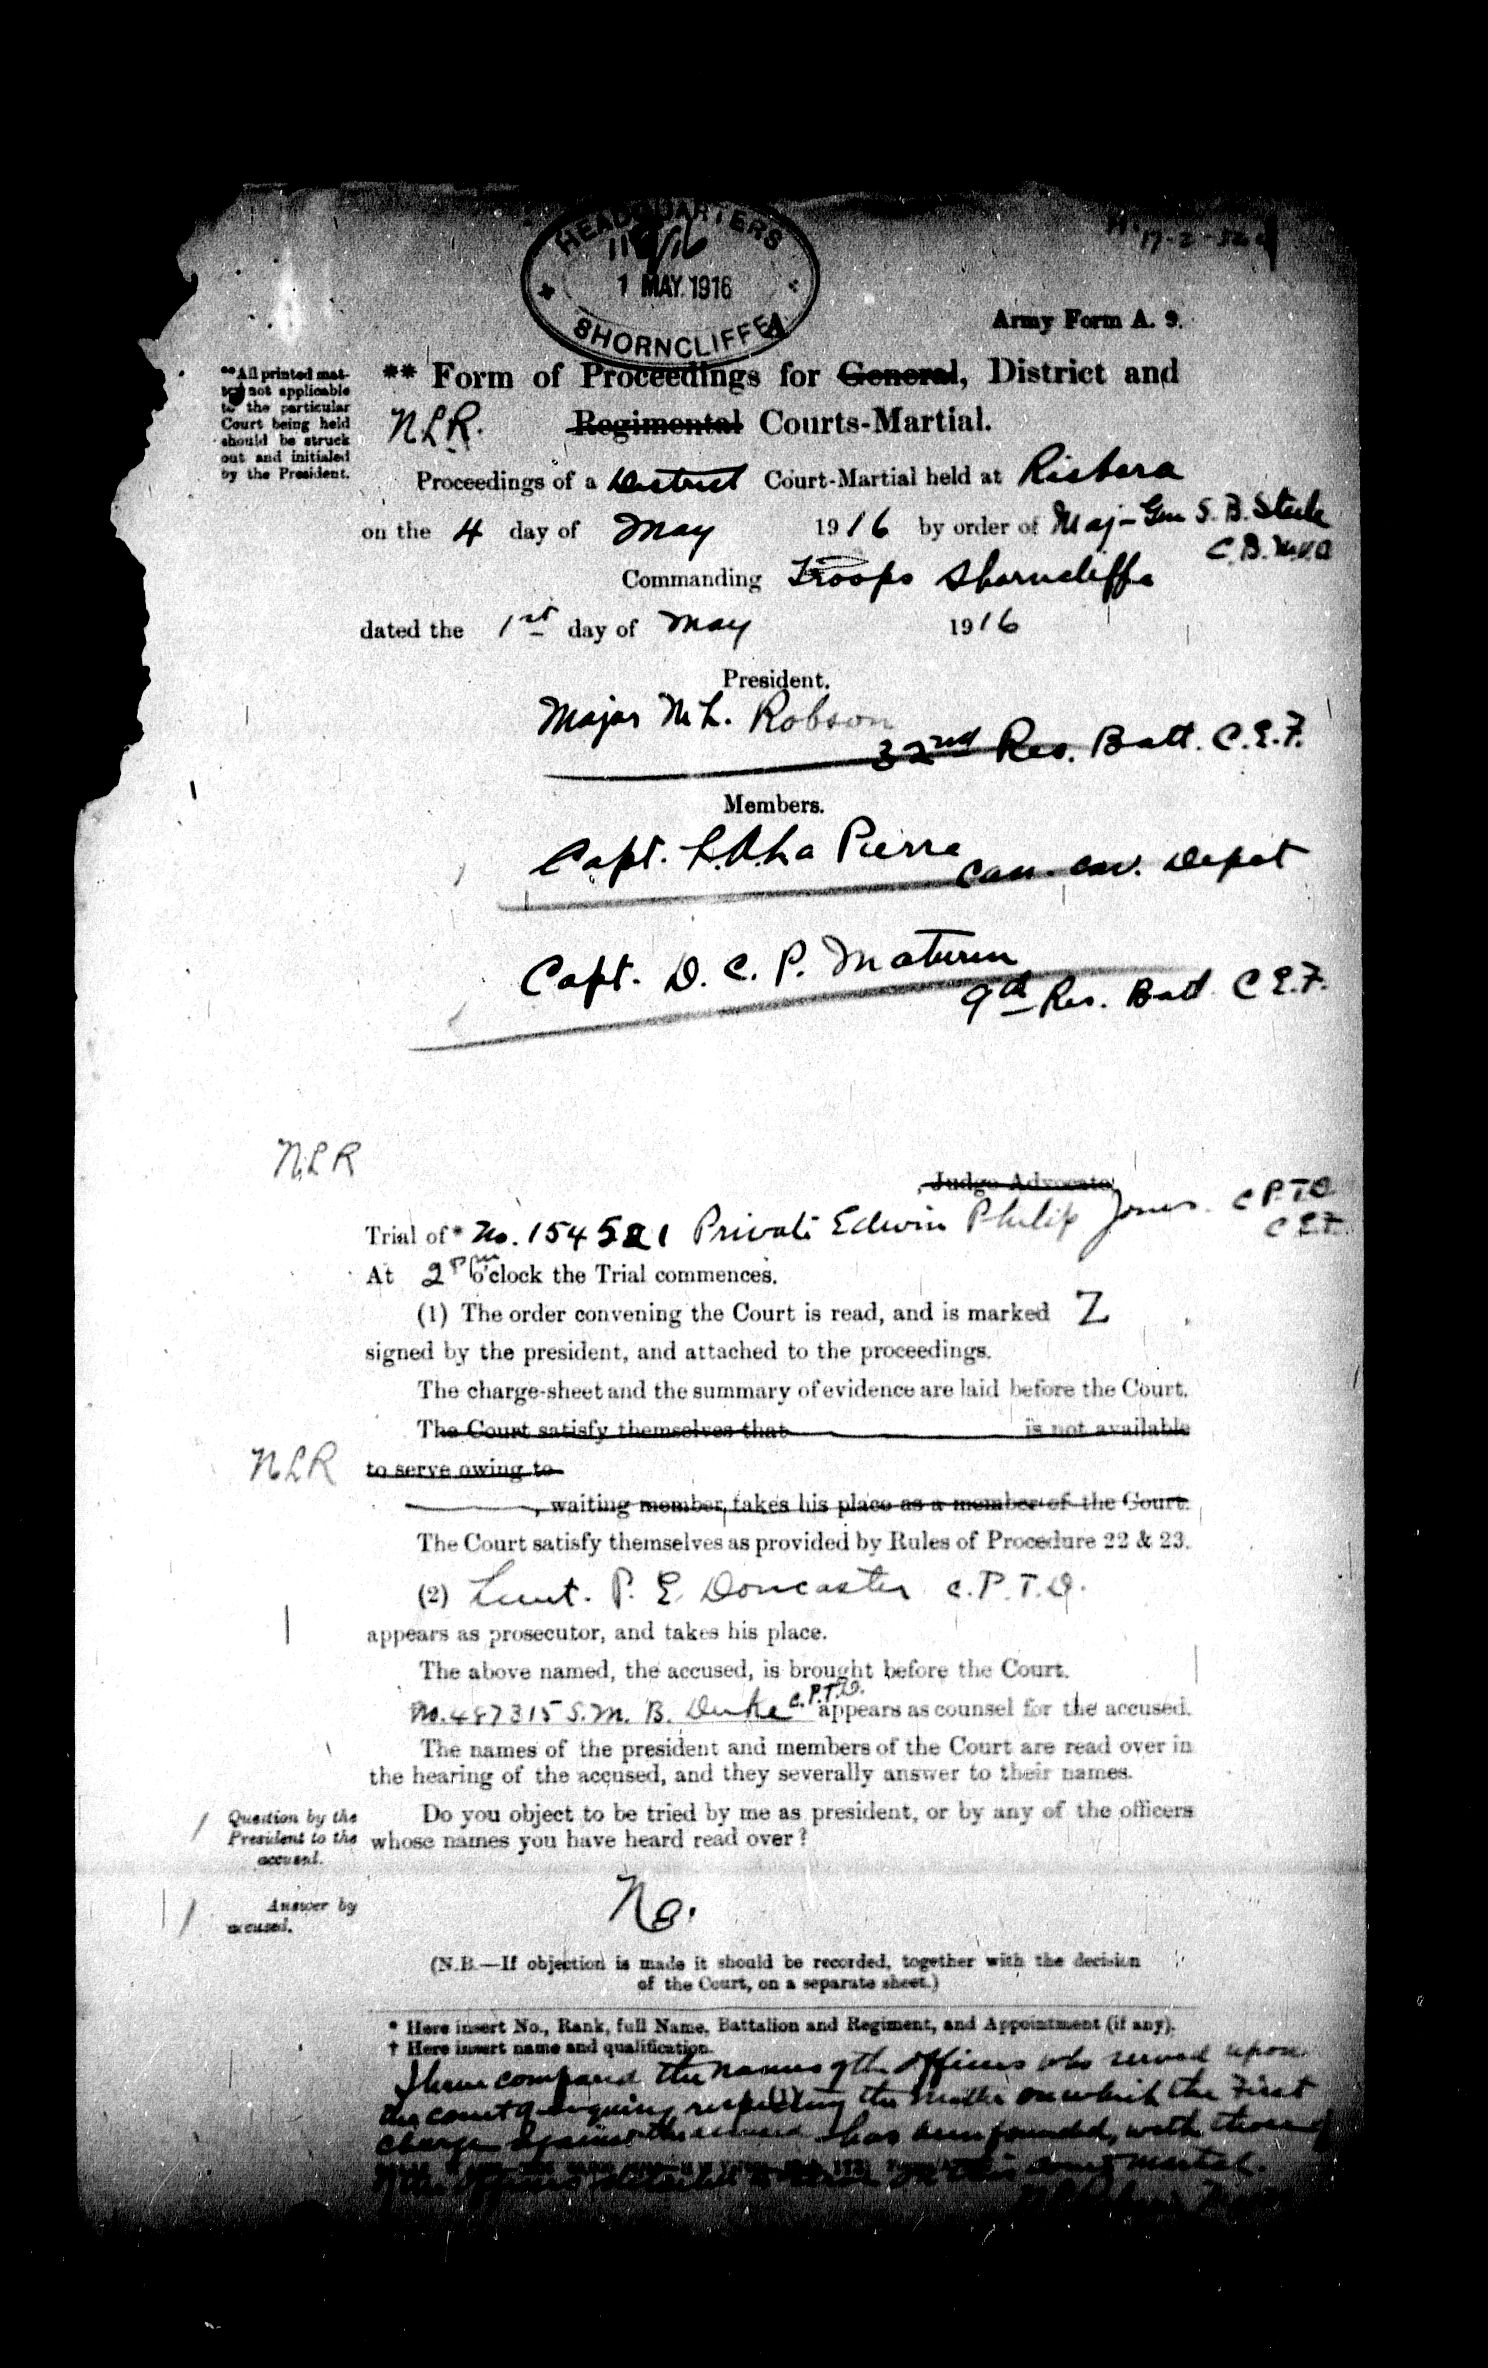 HEADQUARTERS
1 MAY 1916
SHORNCLIFFE
Army Form A. 9.
** Form of Proceedings for General, District and
Regimental Courts-Martial.
N.L.R.
**All printed mat-
ter not applicable
to the particular
Court being held
should be struck
out and initialed
by the President.
Proceedings of a District Court-Martial held at Risboro
on the 4 day of May 1916 by order of Maj-Gen S. B. Steele
C.B. M.V.O
Commanding Troops Shorncliffe
dated the 1st day of May 1916
President.
Major N. L. Robson
32nd Res. Batt. C.E.F.
Members.
Capt. La Pierre
Can. Cav. Depot
Capt. D. C. P. Maturin
9th Res. Batt C.E.F.
N.L.R
Judge Advocate
Trial of * No. 154521 Private Edwin Philip Jones. C P.T.D
C E.F.
At 2 pm o'clock the Trial commences.
(1) The order convening the Court is read, and is marked Z
signed by the president, and attached to the proceedings.
The charge-sheet and the summary of evidence are laid before the Court.
The Court satisfy themselves that is not available
NLR to serve owing to
, waiting member, takes his place as a member of the Court.
The Court satisfy themselves as provided by Rules of Procedure 22 & 23.
(2) Lieut. P. E. Doncaster C.P.T.D.
appears as prosecutor, and takes his place.
The above named, the accused, is brought before the Court.
No. 487315 S.M. B. Duke C.P.T.D. appears as counsel for the accused.
The names of the president and members of the Court are read over in
the hearing of the accused, and they severally answer to their names.
Question by the
President to the
accused.
Do you object to be tried by me as president, or by any of the officers
whose names you have heard read over?
Answer by
accused.
No.
(N.B.—If objection is made it should be recorded, together with the decision
of the Court, on a separate sheet.)
* Here insert No., Rank, full Name, Battalion and Regiment, and Appointment (if any).
† Here insert name and qualification.
I have compared the names of the officers who served upon
the court of enquiry respecting the matter on which the First
charge against the accused has been founded, with those of
the officers this court martial.